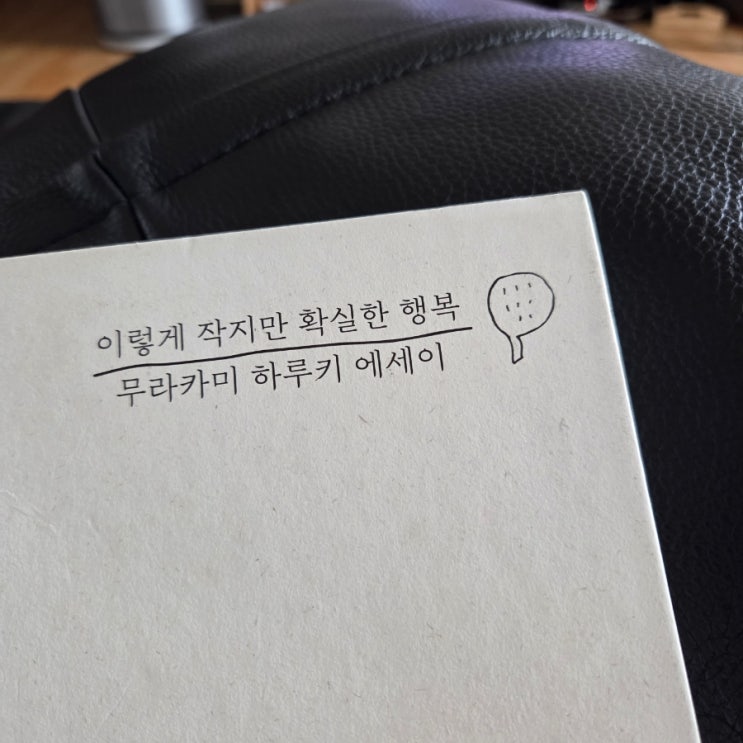 이렇게 작지만 확실한 행복
무라카미 하루키 에세이